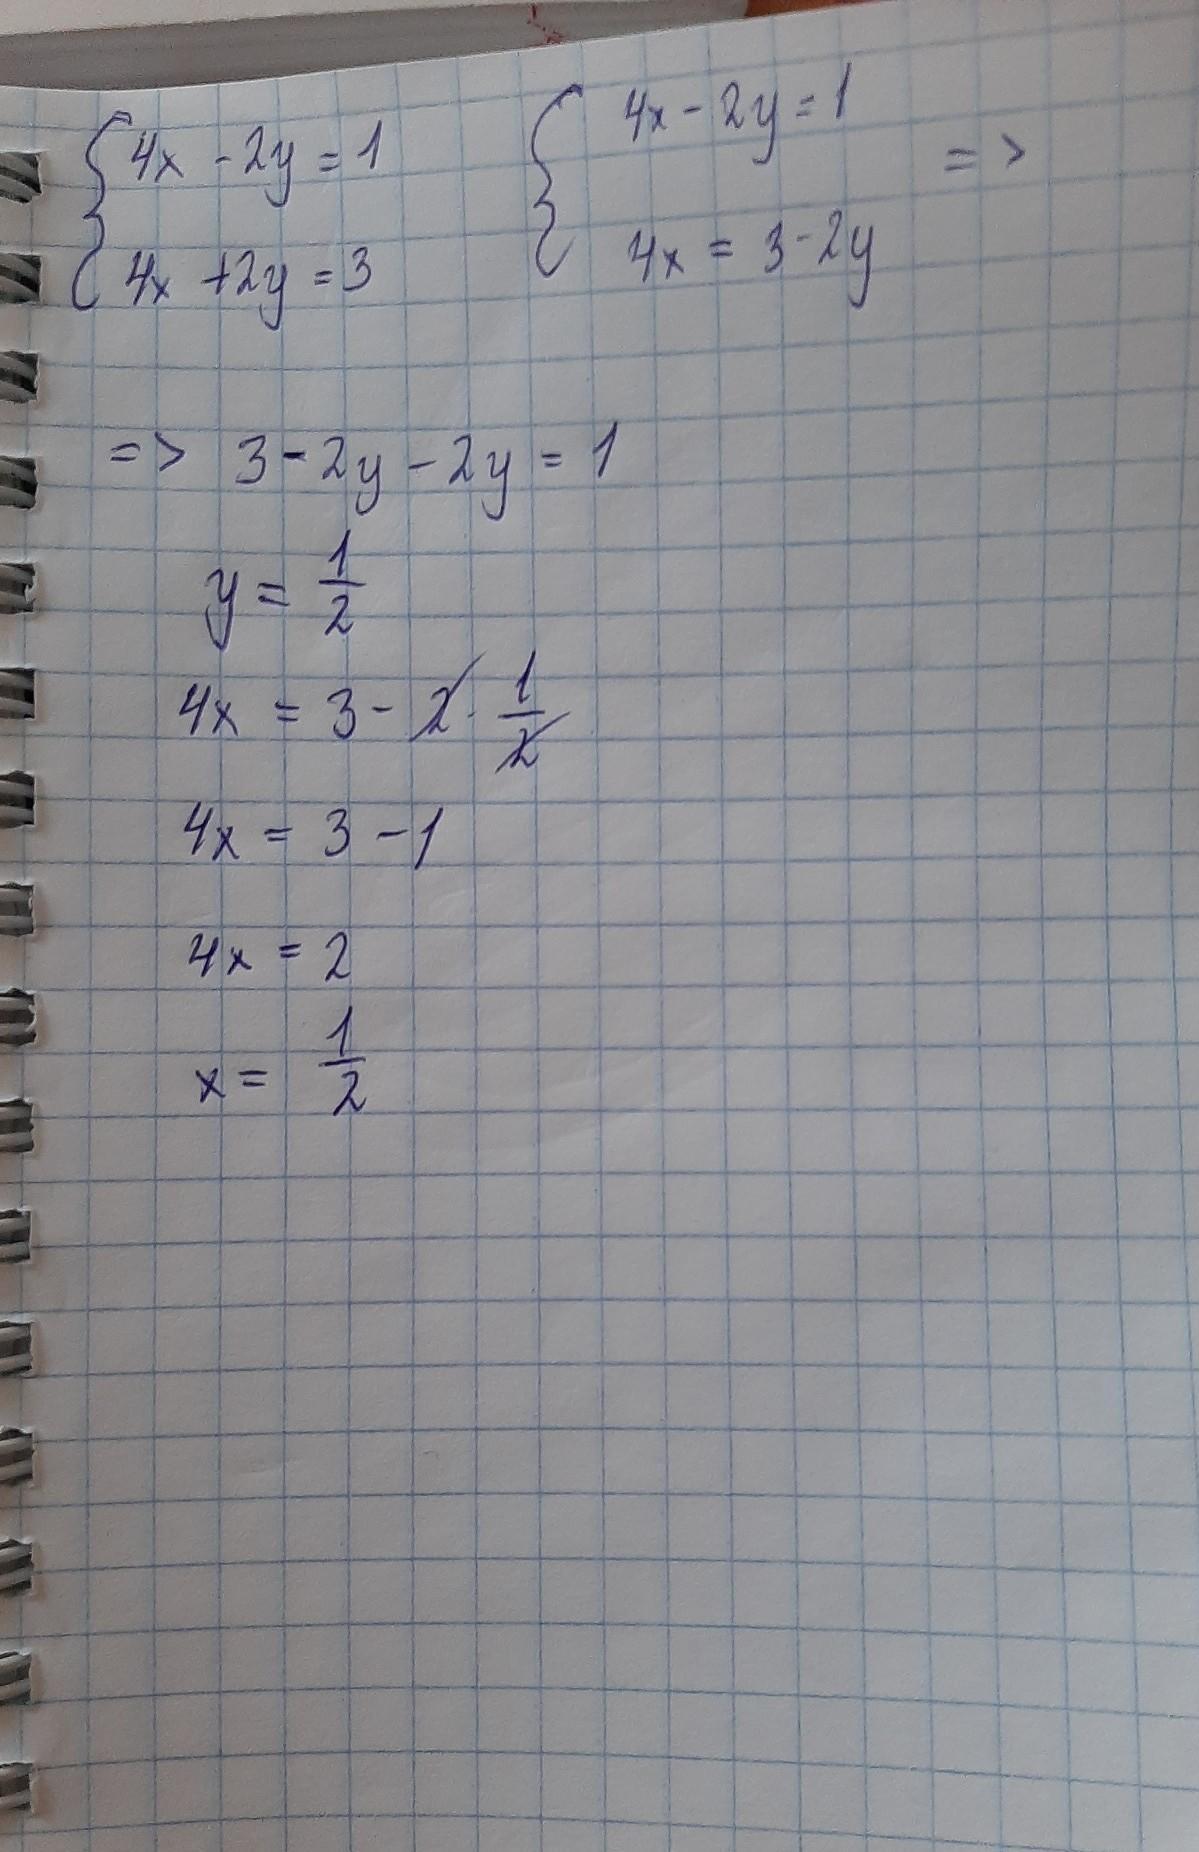 {4x - 2y = 1 {4x - 2y = 1 =>
4x + 2y = 3 4x = 3 - 2y
=> 3 - 2y - 2y = 1
y = 1/2
4x = 3 - 2 · 1/2
4x = 3 - 1
4x = 2
x = 1/2